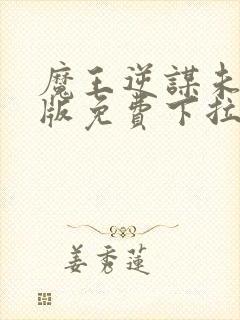 魔王逆謀未
版免費下拉
姜秀蓮